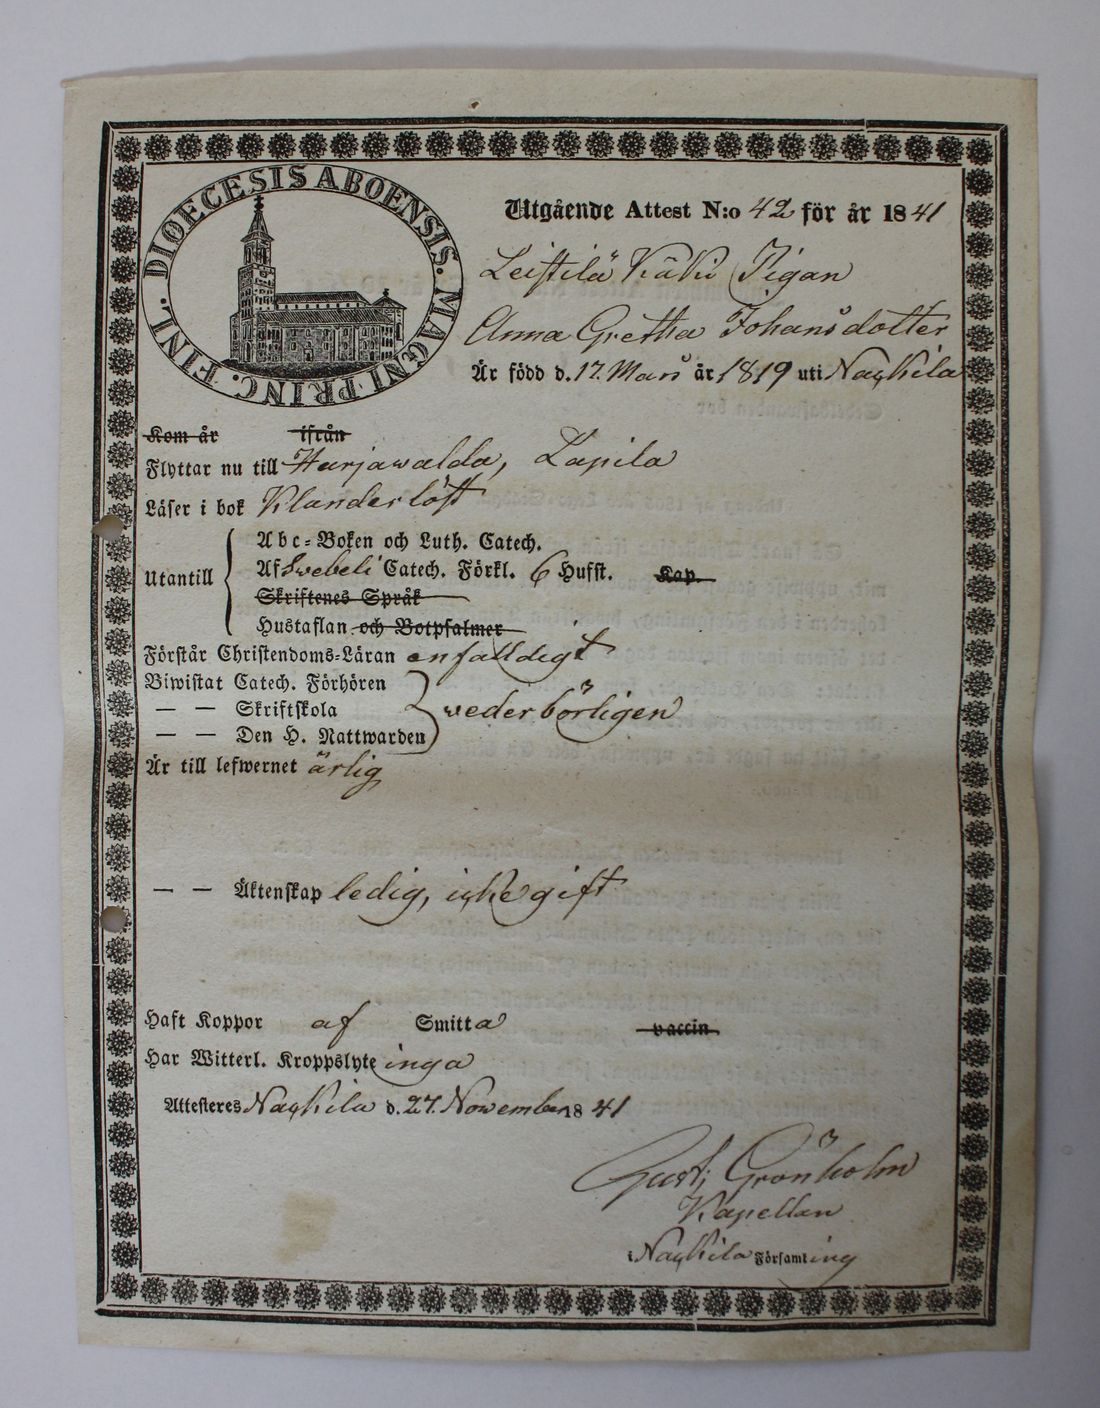 DIOECESIS ABOENSIS. MAGNI PRINC. FINL.
Utgående Attest N:o 42 för år 1841
Leistilä Käkü Pigan
Anna Gretha Johansdotter
Är född d. 17. Mars år 1819 uti Nackila
Kom år ifrån
Flyttar nu till Harjawalda, Lapila
Läser i bok Klanderlöst
Utantill
Abc-Boken och Luth. Catech.
Af Svebeli Catech. Förkl. 6 Hufst. Kap.
Skriftenes Språk
Hustaflan och Botpsalmer
Förstår Christendoms-Läran enfalldigt
Biwistat Catech. Förhören
— — Skriftskola wederbörligen
— — Den H. Nattwarden
Är till lefwernet ärlig
— — Äktenskap ledig, icke gift
Haft Koppor af Smitta vaccin
Har Witterl. Kroppslyte inga
Attesteres Nackila d. 27. November 1841
Gust; Grönholm
Kapellan
i Nackila Församling